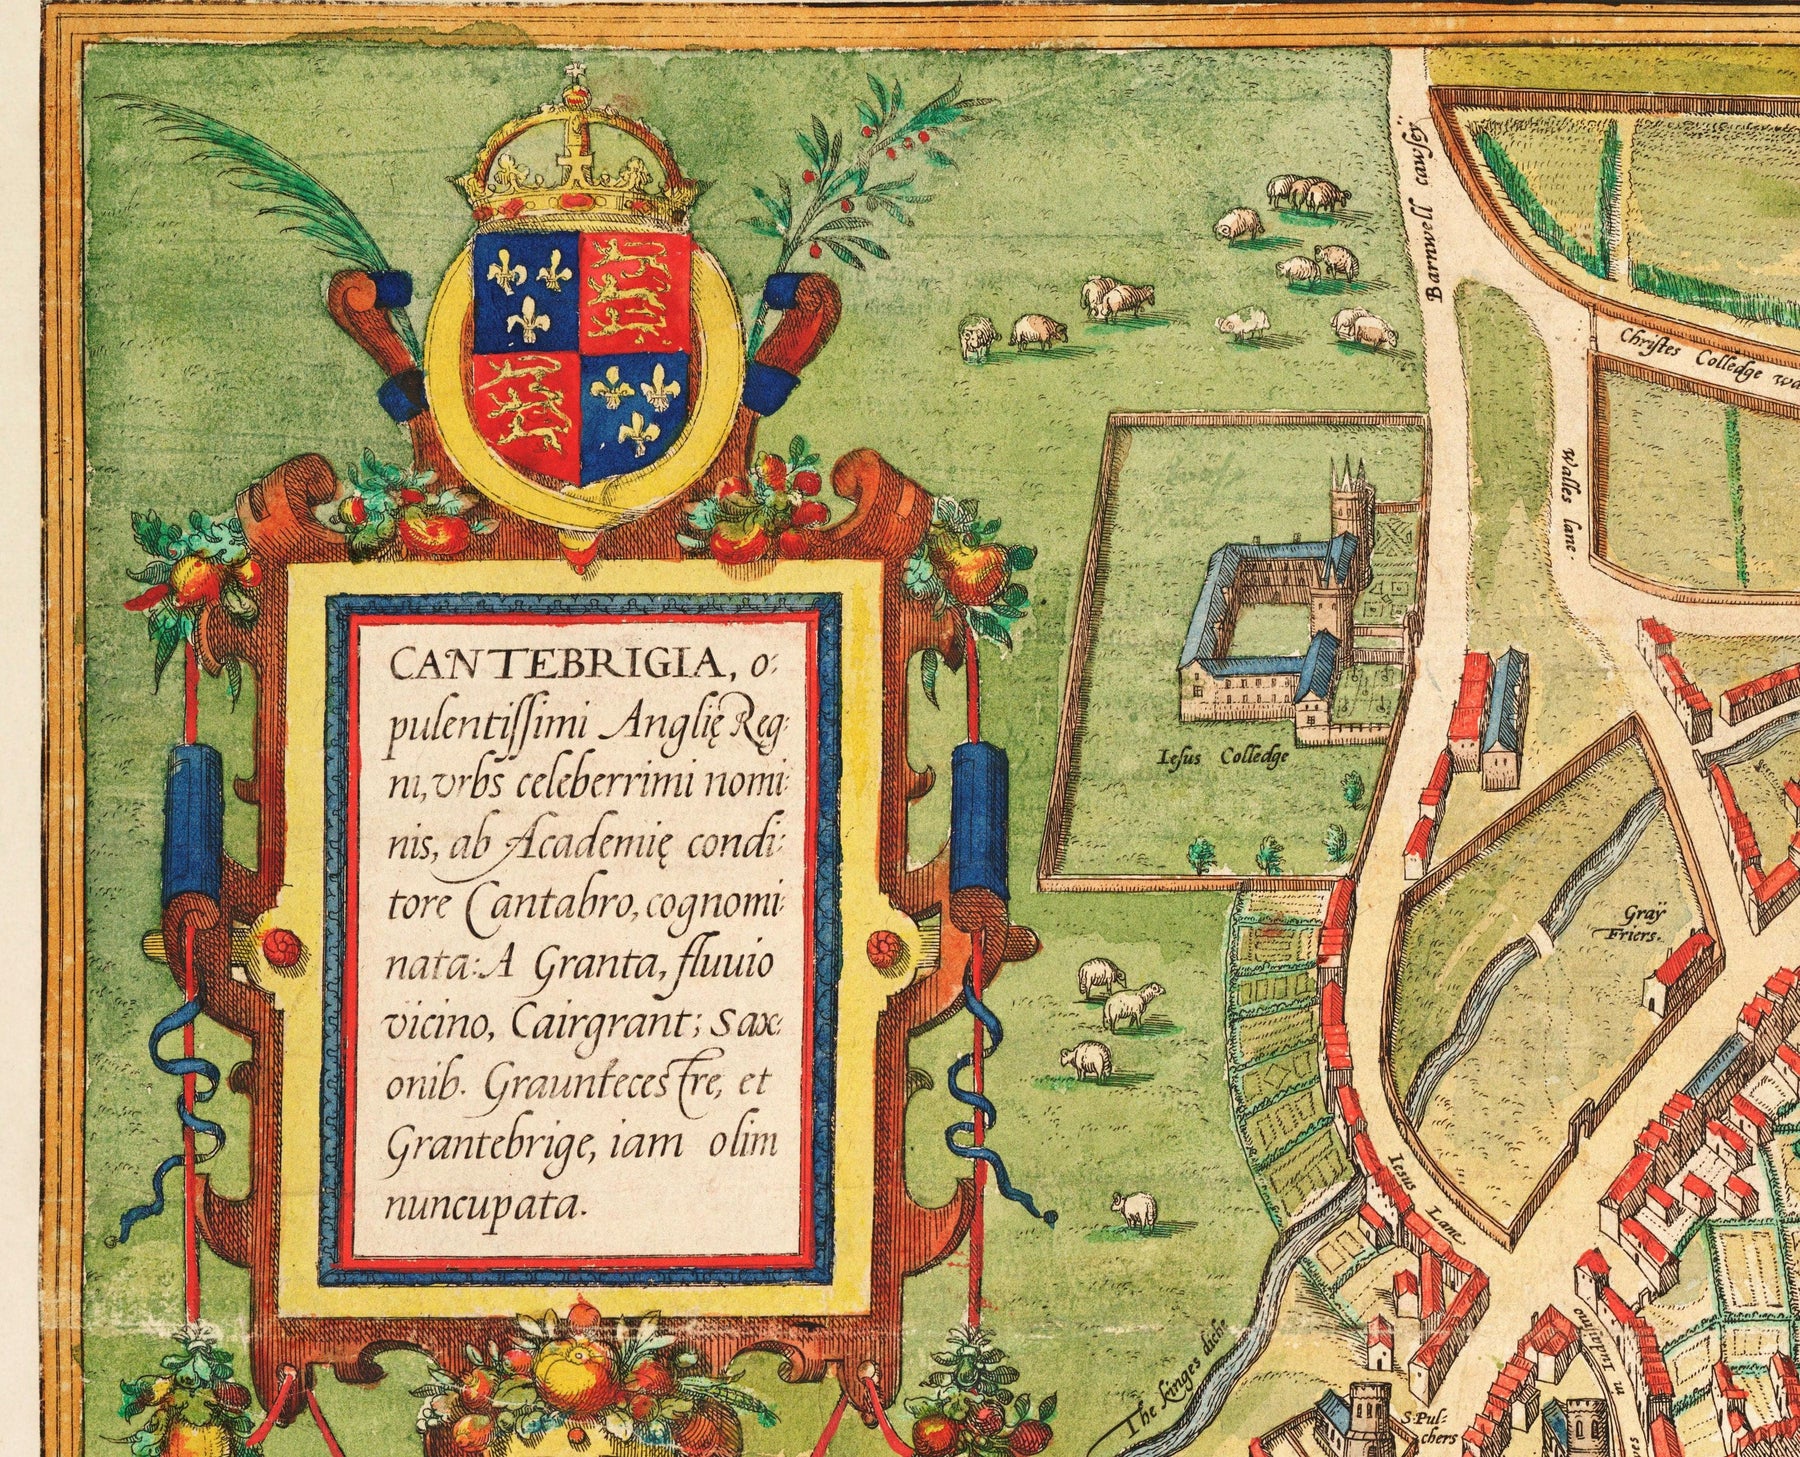 CANTEBRIGIA, o:
pulentiſſimi Anglię Reg:
ni, vrbs celeberrimi nomi:
nis, ab Academię condi:
tore Cantabro, cognomi:
nata: A Granta, fluuio
vicino, Cairgrant; Sax:
onib. Grauntecestre, et
Grantebrige, iam olim
nuncupata.
Barnwell cawſey
Chriſtes Colledge wa
Walles lane.
Ieſus Colledge
Graÿ
Friers.
Iesus Lane
The kinges diche
S. Pul=
chers